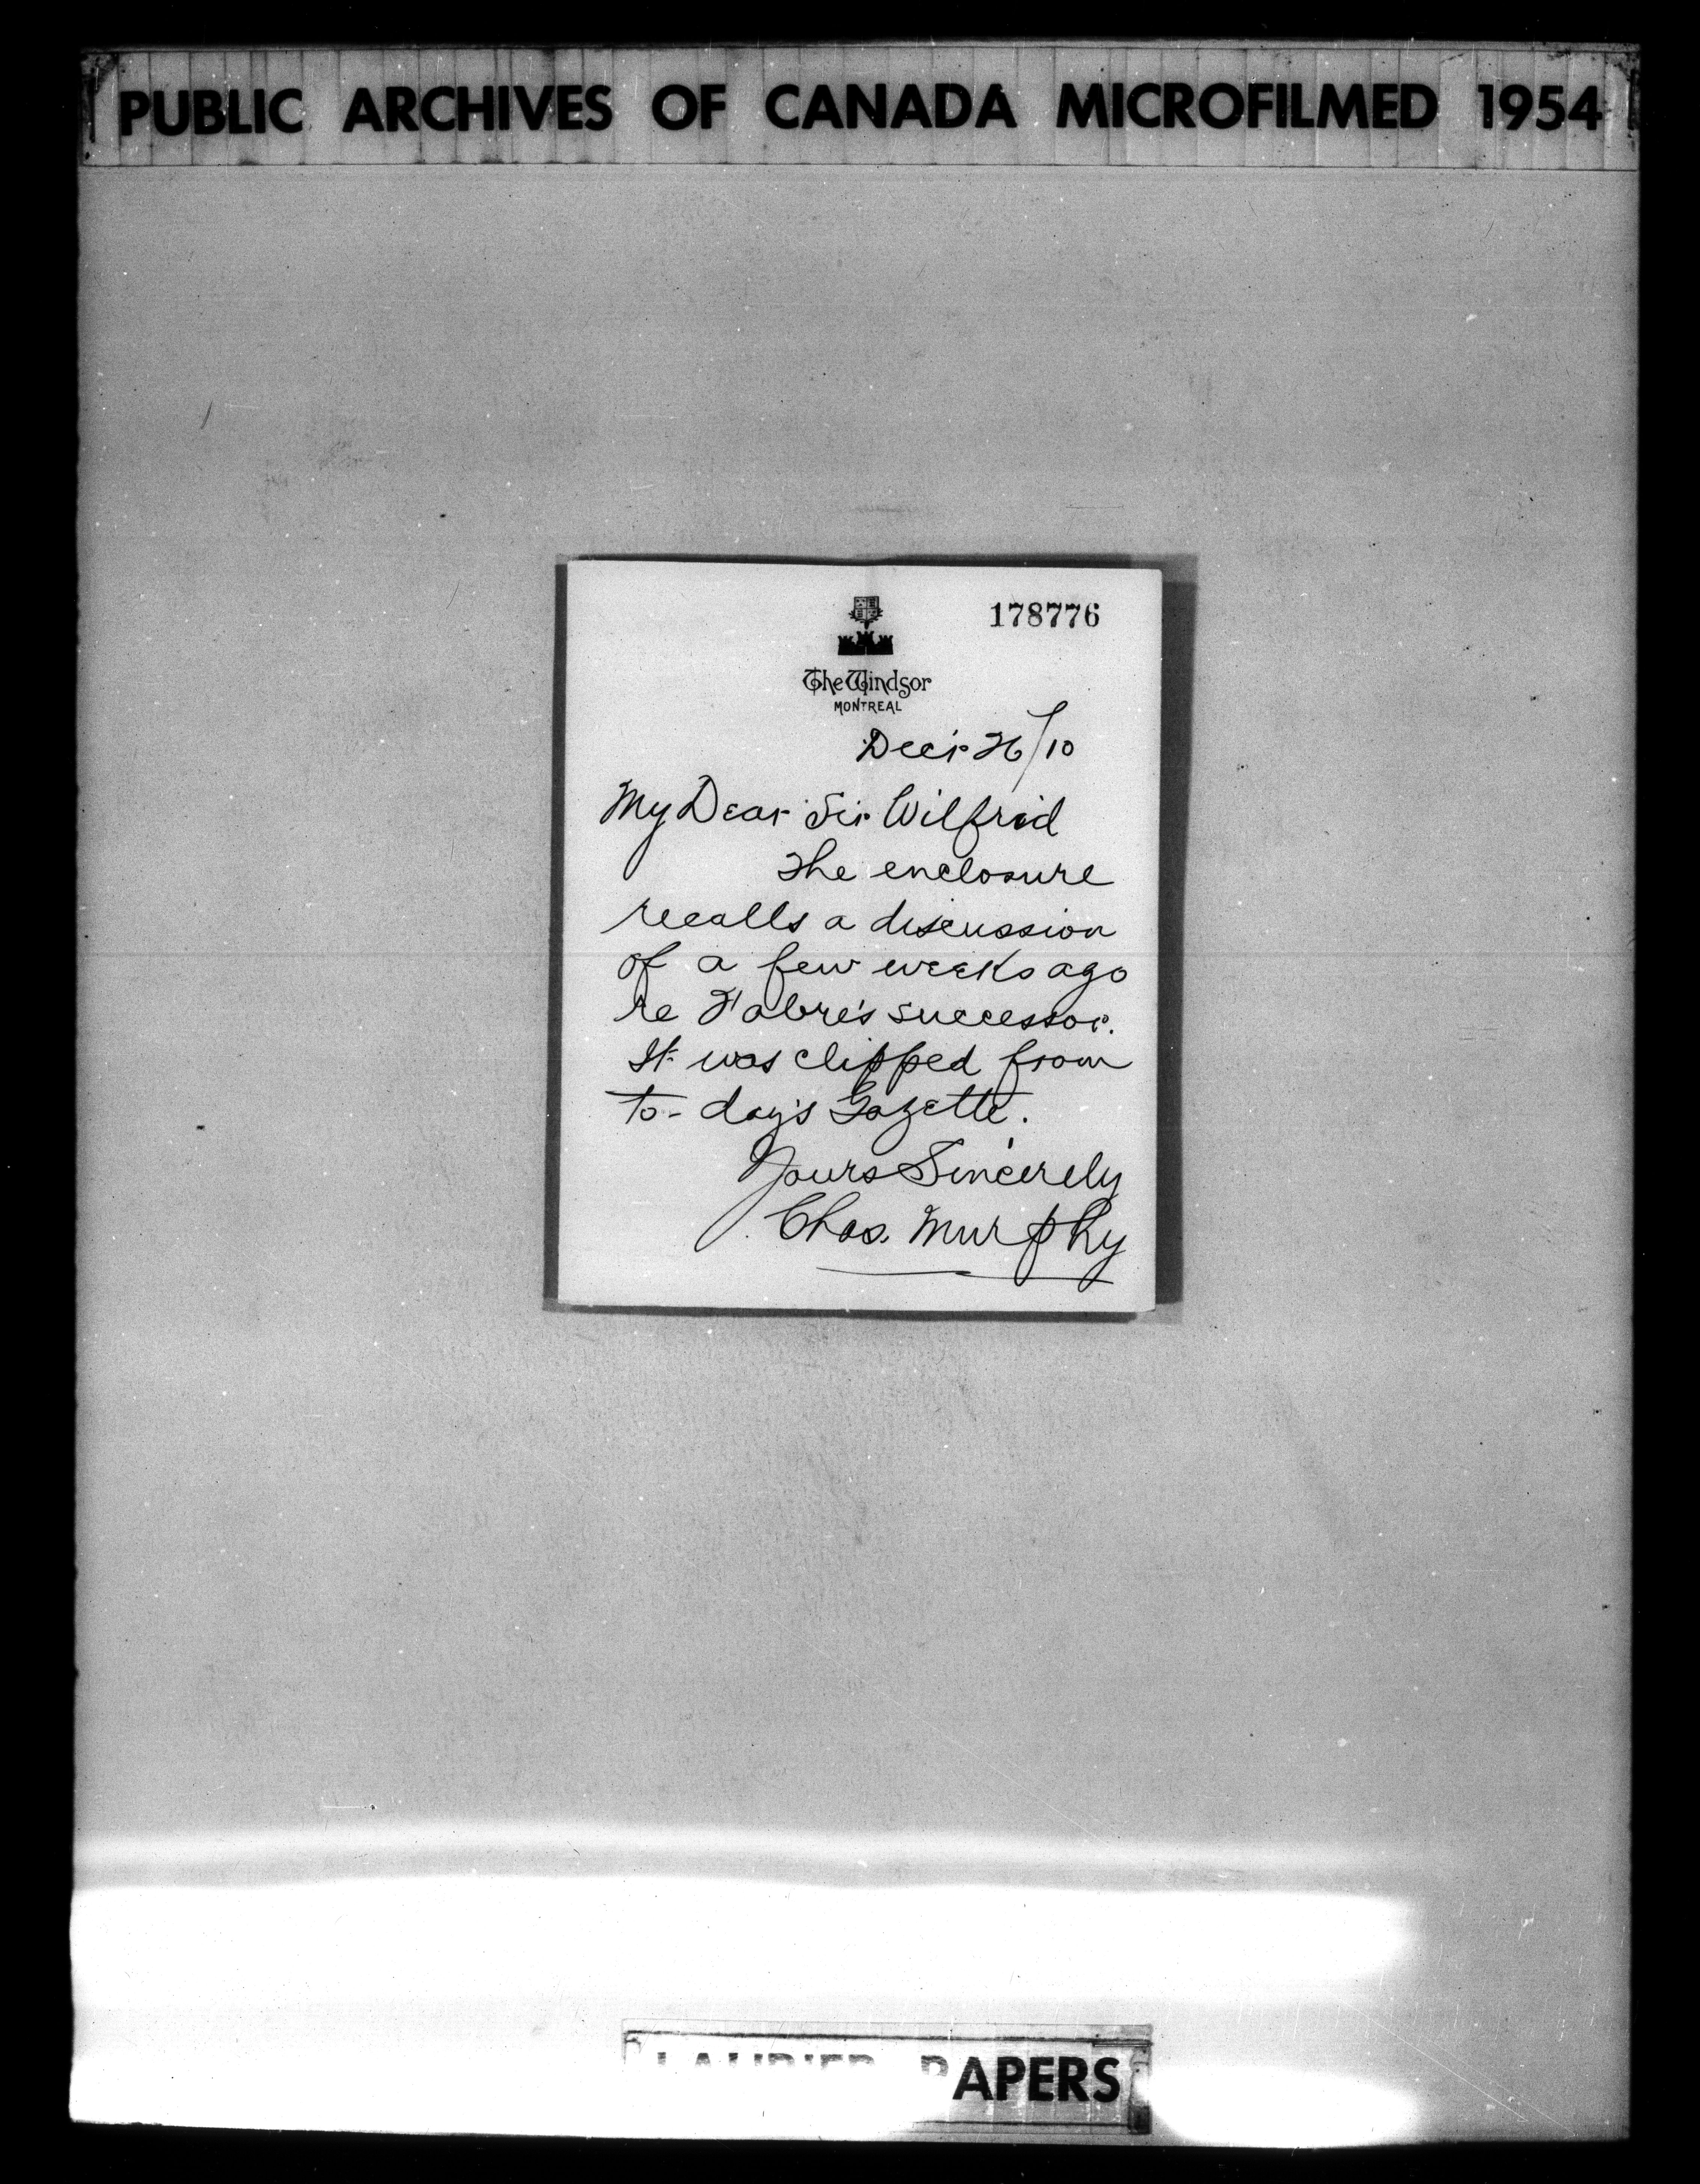 PUBLIC ARCHIVES OF CANADA MICROFILMED 1954
178776
The Windsor
MONTREAL
Decr 26/10
My Dear Sir Wilfrid
The enclosure
recalls a discussion
of a few weeks ago
re Fabre's successor.
It was clipped from
to-day's Gazette.
Yours Sincerely
Chas. Murphy
LAURIER PAPERS